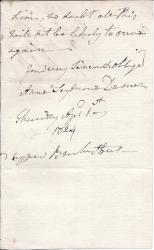 him, no doubt all this
will not be likely to occur
again —
your very sincere & obliged
Anne Seymour Damer
Thursday Apl 1st
1824
Upper Brook Street